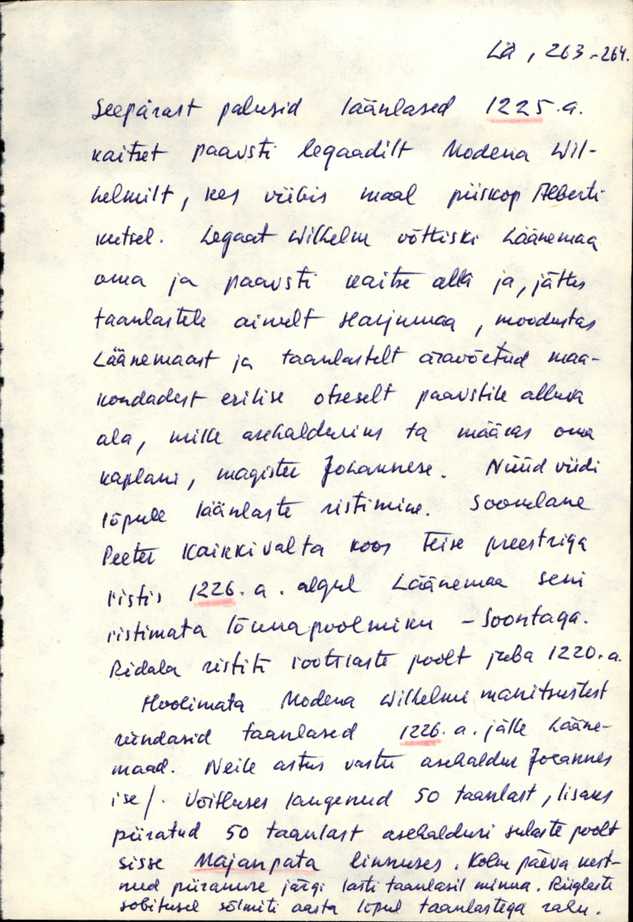 Lä, 263-264.
Seepärast palusid läänlased 1225.a.
kaitset paavsti legaadilt Modena Wil-
helmilt, kes viibis maal piiskop Alberti
kutsel. Legaat Wilhelm võttiski Läänemaa
oma ja paavsti kaitse alla ja, jättes
taanlastele ainult Harjumaa, moodustas
Läänemaast ja taanlastelt äravõetud maa-
kondadest erilise otseselt paavstile alluva
ala, mille asehalduriks ta määras oma
kaplani, magister Johannese. Nüüd viidi
lõpule läänlaste ristimine. Soomlane
Peeter Kaikkivalta koos teise preestriga
ristis 1226.a. algul Läänemaa seni
ristimata lõunapoolmiku - Soontaga.
Ridala ristiti rootslaste poolt juba 1220.a.
Hoolimata Modena Wilhelmi manitsustest
ründasid taanlased 1226.a. jälle Lääne-
maad. Neile astus vastu asehaldur Johannes
ise/. Võitluses langenud 50 taanlast, lisaks
piiratud 50 taanlast asehalduri sulaste poolt
sisse Majanpata linnuses. Kolm päeva kest-
nud piiramise järgi lasti taanlasil minna. Riiglaste
sobitusel sõlmiti aasta lõpul taanlastega rahu.